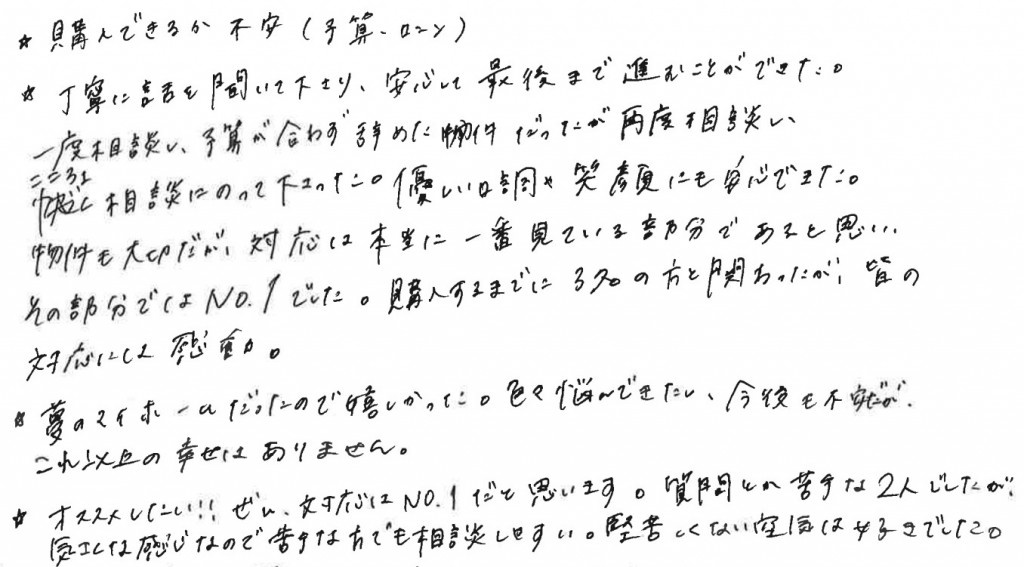 ☆ 購入できるか不安（予算・ローン）
☆ 丁寧に話を聞いて下さり、安心して最後まで進むことができた。
一度相談し、予算が合わず辞めた物件だったが再度相談し、
こころよ
快く相談にのって下さった。優しい口調や笑顔にも安心できた。
物件も大切だが、対応は本当に一番見ている部分であると思い、
その部分ではNO.1でした。購入するまでに3名の方と関わったが、皆の
対応には感動。
☆ 夢のマイホームだったので嬉しかった。色々悩んできたし、今後も不安だが、
これ以上の幸せはありません。
☆ オススメしたい!! ぜひ、対応はNO.1だと思います。質問とか苦手な2人でしたが、
気さくな感じなので苦手な方でも相談しやすい。堅苦しくない空気は好きでした。